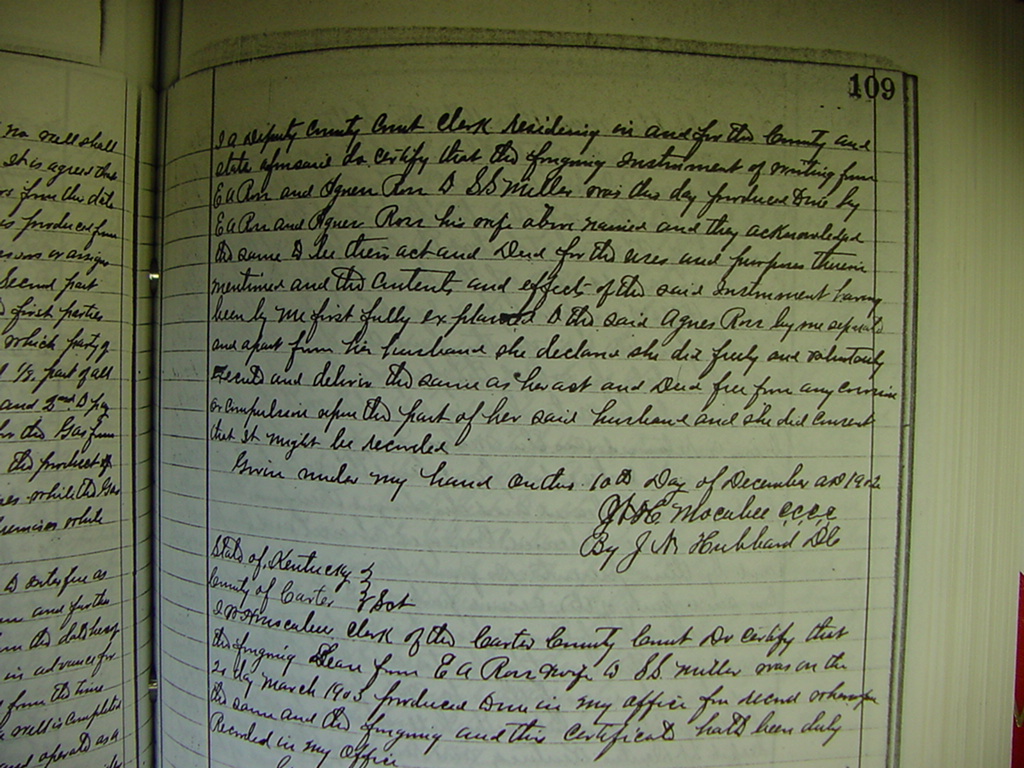 109
no well shall
It is agreed that
from the date
is produced from
or assigns
Second part
first parties
which party of
1/8 part of all
and 2nd D pay
for the Gas from
the product of
while the Gas
premises while
D interfere as
and further
the date hereof
in advance for
from the time
well is completed
and operated as a
I a Deputy County Court Clerk residing in and for the County and
state aforesaid do certify that the foregoing Instrument of writing from
E A Ross and Agness Ross D S S Miller was this day produced D me by
E A Ross and Agness Ross his wife above named and they acknowledged
the same D be their act and Deed for the uses and purposes therein
mentioned and the contents and effects of the said Instrument having
been by me first fully explained D the said Agnes Ross by me separate
and apart from her husband she declared she did freely and voluntarily
Execute and deliver the same as her act and Deed free from any coercion
or compulsion upon the part of her said husband and she did consent
that it might be recorded
Given under my hand on this 10th Day of December AD 1902
Mocabee C.C.C.C
By J N Hubbard DC
State of Kentucky }
County of Carter } Sct
Clerk of the Carter County Court Do certify that
the foregoing Lease from E A Ross wife D S.S. Miller was on the
day March 1903 produced D me in my office for record whereupon
the same and the foregoing and this certificate hath been duly
Recorded in my office